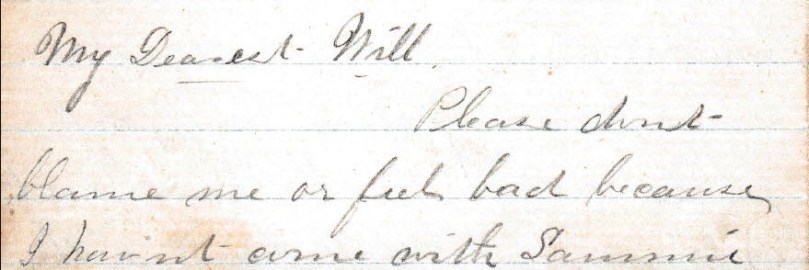 My Dearest Will.
Please dont
blame me or feel bad because
I havnt come with Sammie